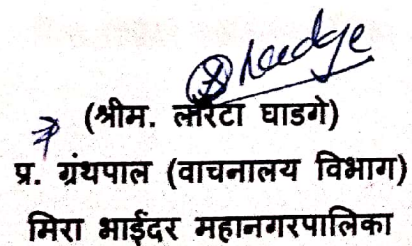 (श्रीम. लॉरेटा घाडगे)
प्र. ग्रंथपाल (वाचनालय विभाग)
मिरा भाईंदर महानगरपालिका